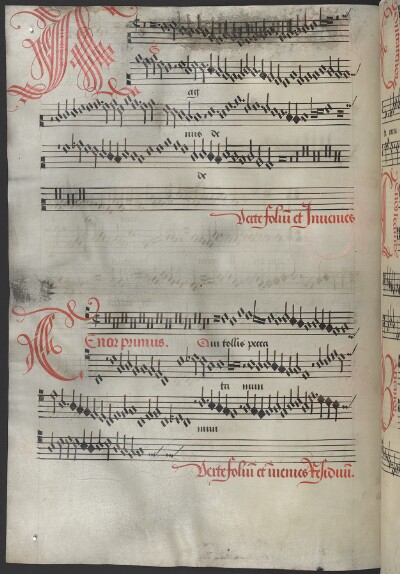 A
nus de
de
Verte foliū et Invenies
Tenor primus. Qui tollis pecca
ta mun
mun
Verte foliū et invenies Residuū.